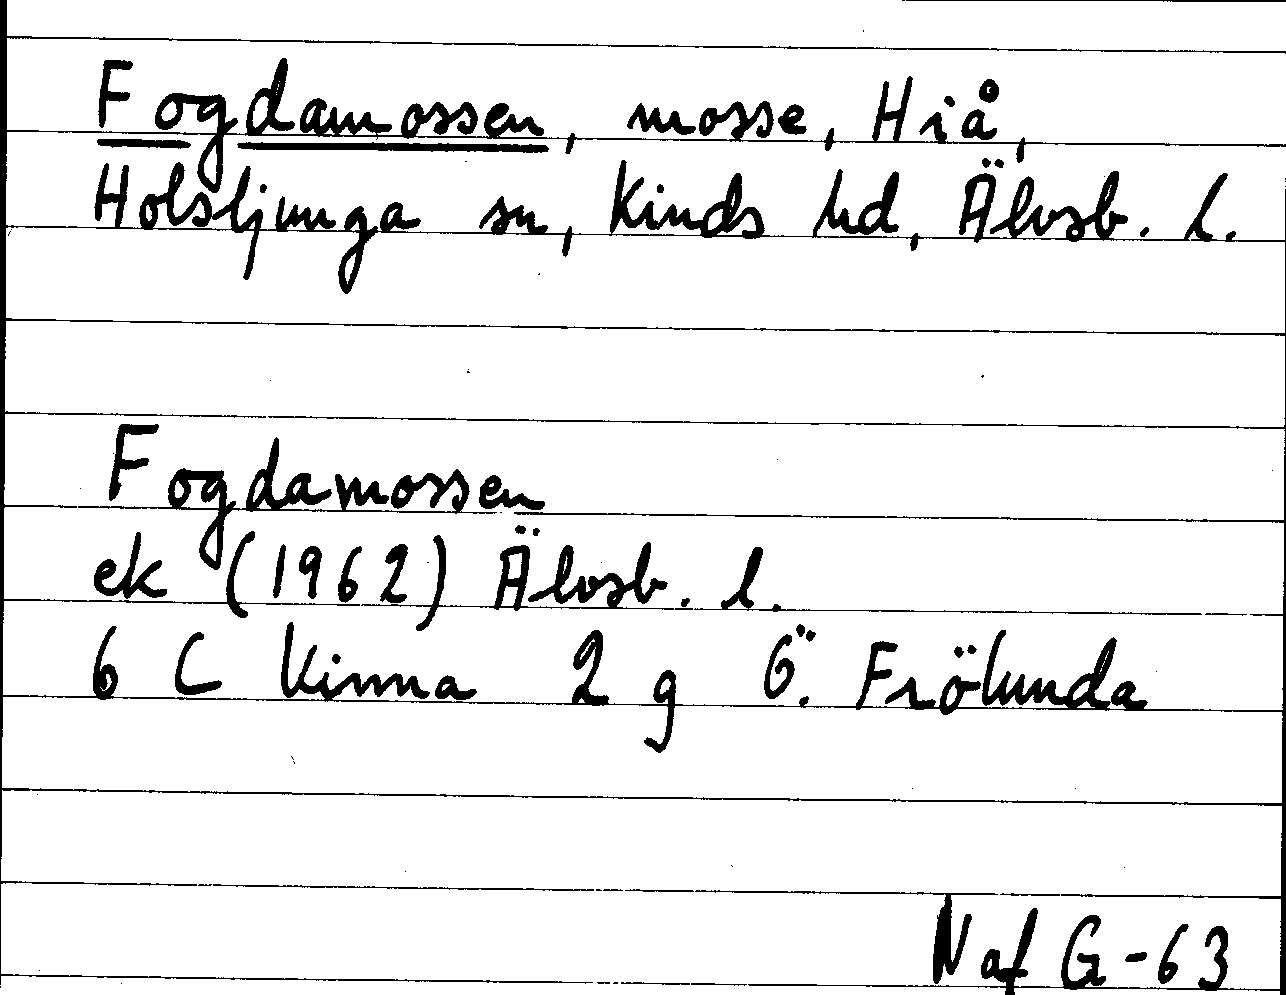 Fogdamossen, mosse, Hiå,
Holsljunga sn, Kinds hd, Älvsb. l.
Fogdamossen
ek (1962) Älvsb. l.
6 C Kinna 2 g Ö. Frölunda
N af G-63